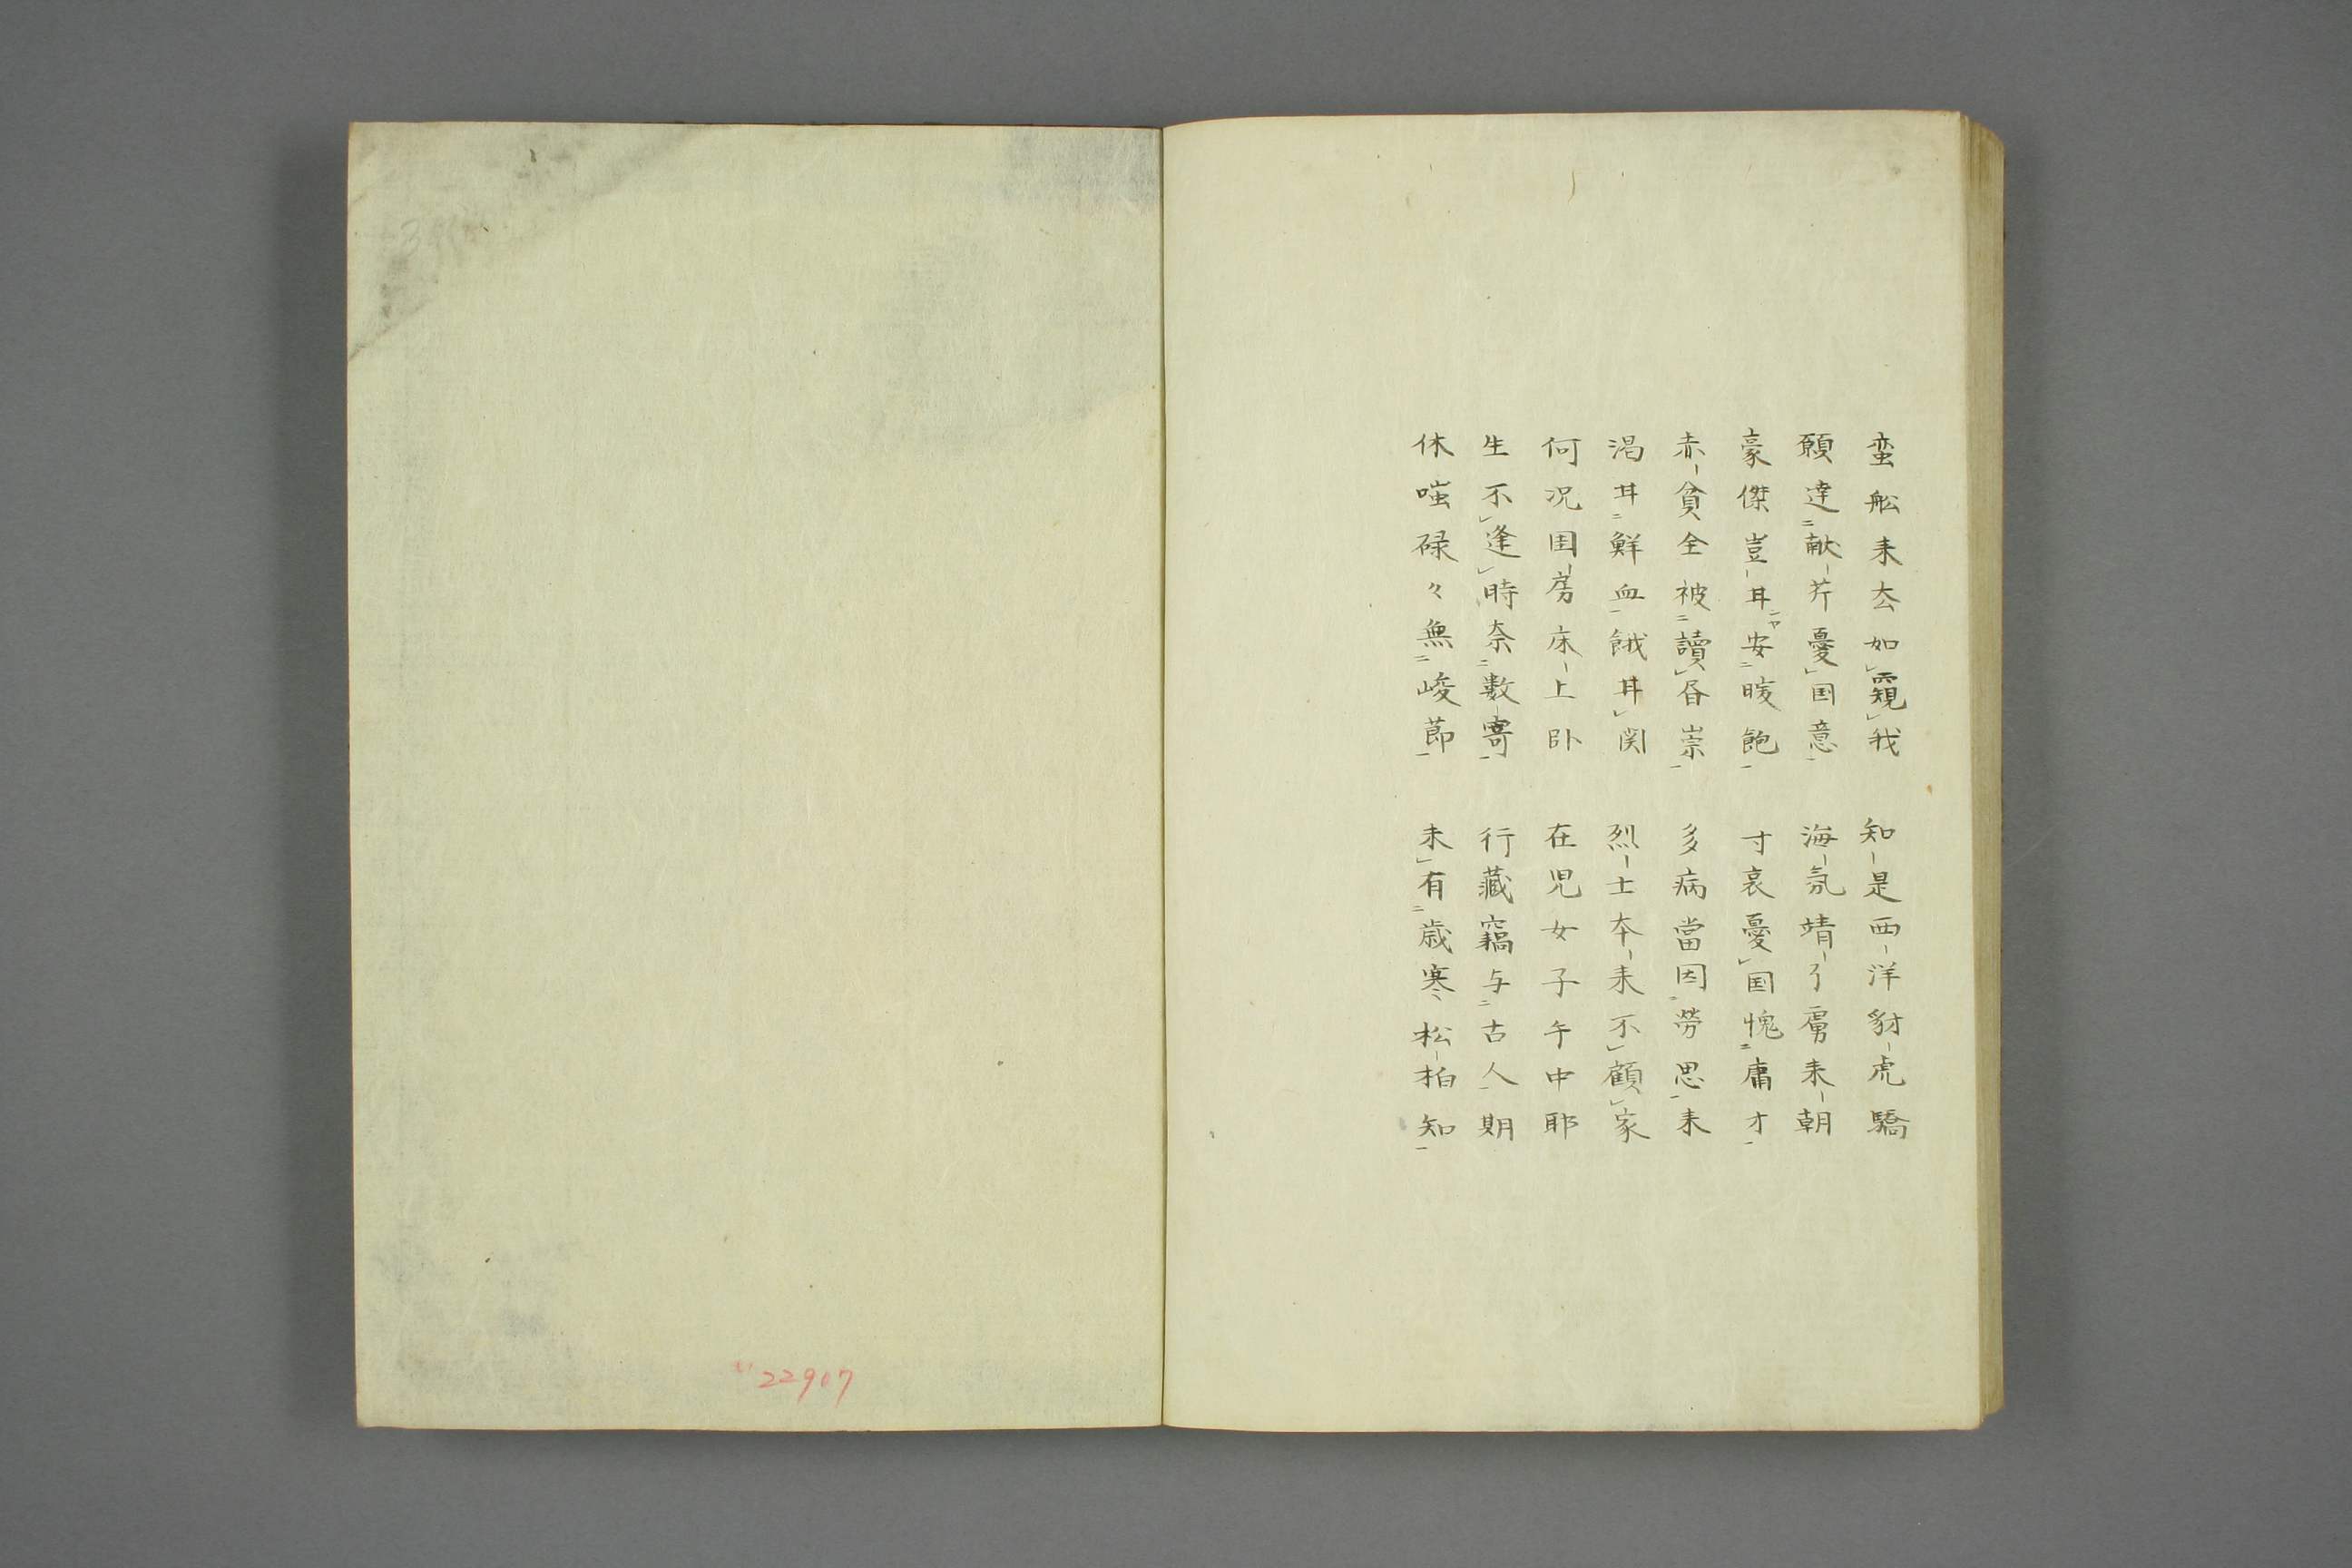 蛮舩来去如覘我　知是西洋豺虎驕
願達献芹憂国意　海氛靖了虜来朝
豪傑豈甘安暖飽　寸哀憂国愧庸才
赤貧全被讀昏崇　多病當因勞思来
渇甘鮮血餓甘関　烈士本来不顧家
何況国房床上卧　在児女子午中耶
生不逢時奈數寄　行藏竊与古人期
休嗤碌々無峻莭　未有歳寒松柏知
22907